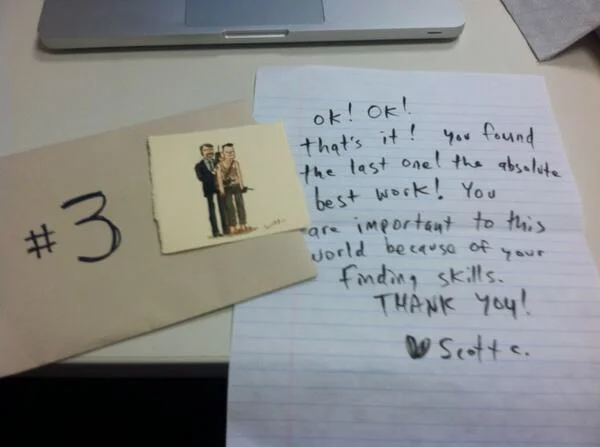 #3
OK! OK!
that's it! you found
the last one! the absolute
best work! You
are important to this
world because of your
finding skills.
THANK YOU!
♥ Scott C.